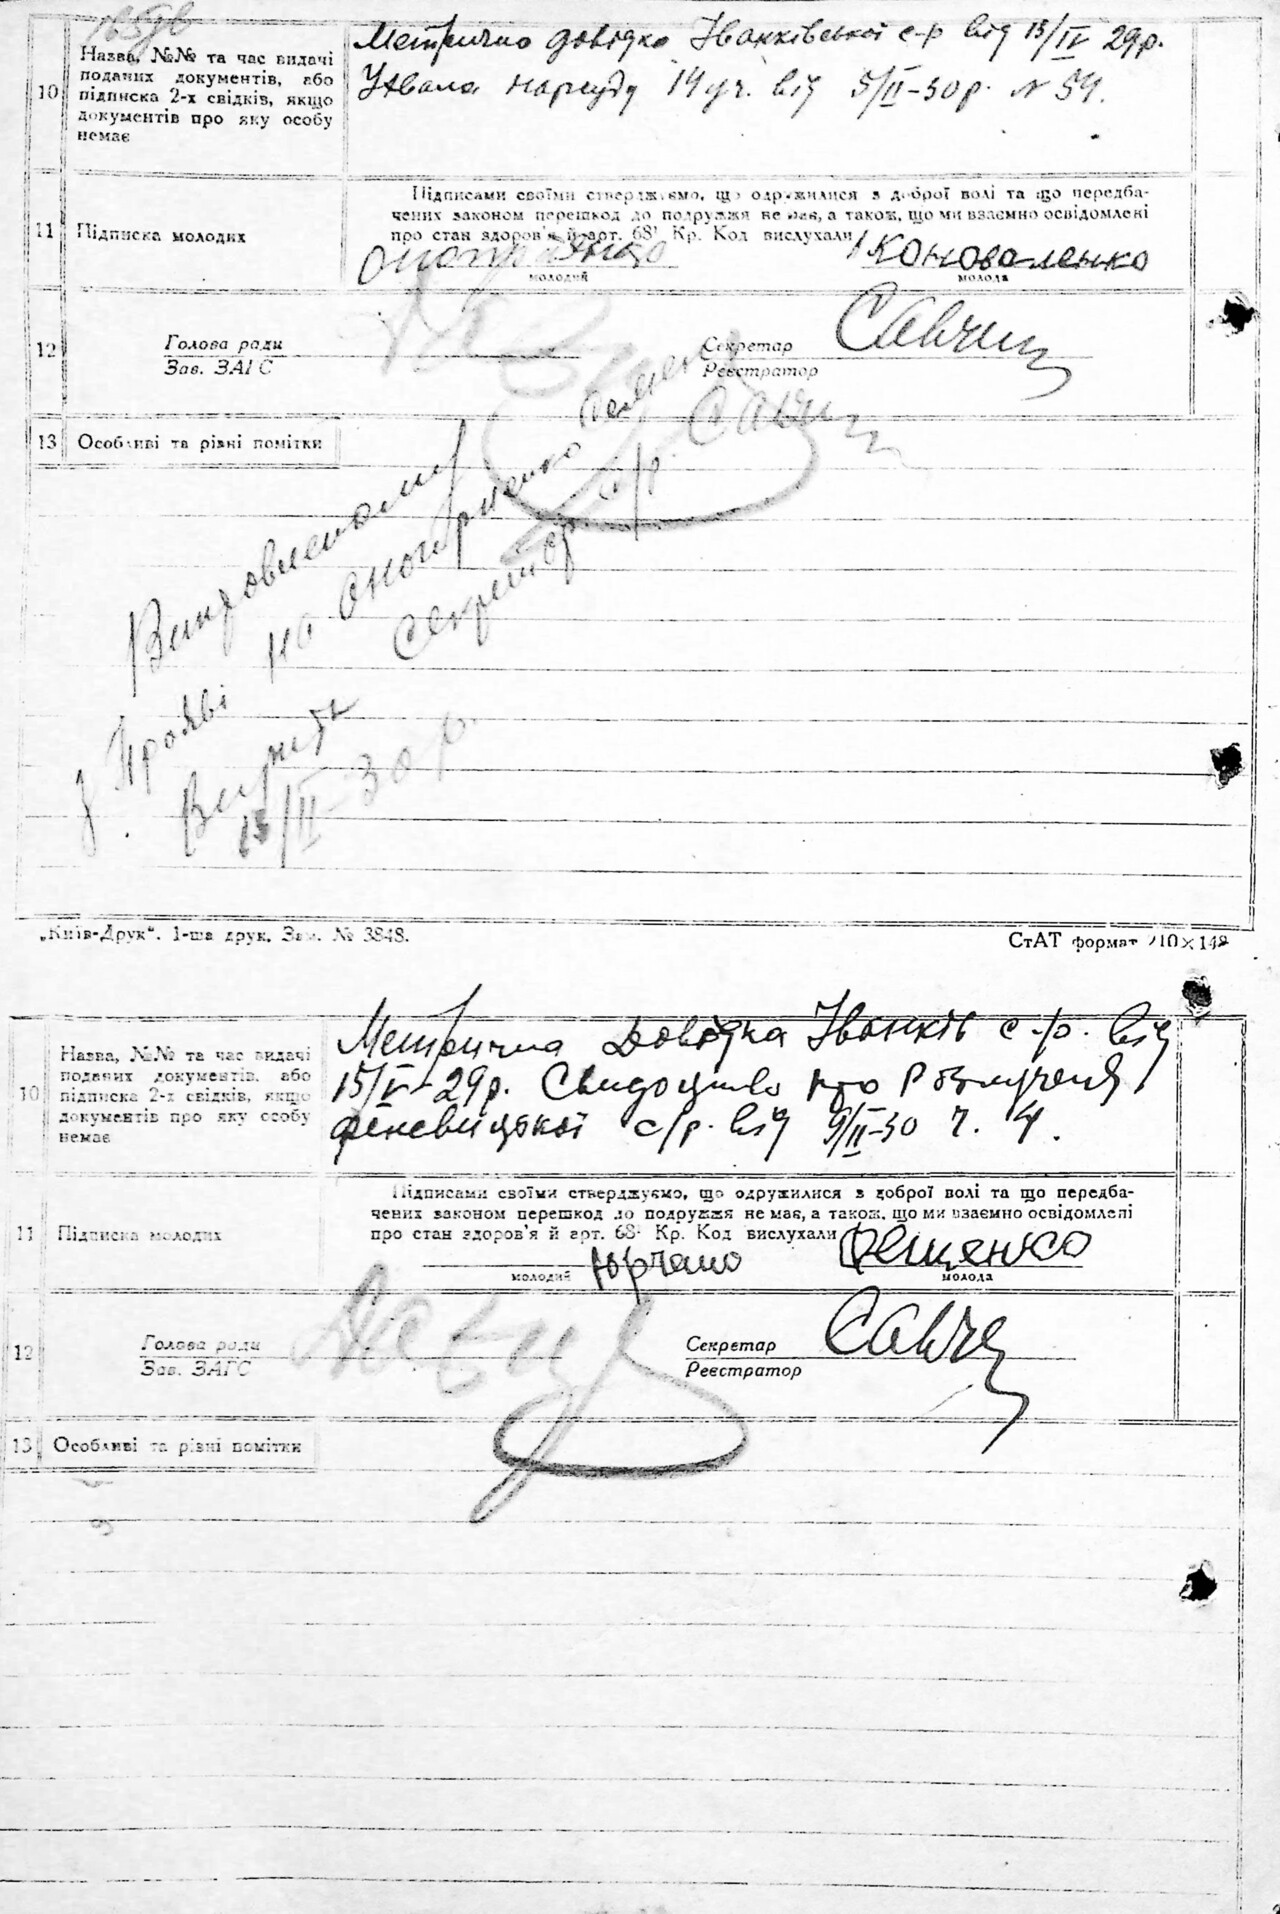 10
Назва, №№ та час видачі
поданих документів, або
підписка 2-х свідків, якщо
документів про яку особу
немає
Метрична довідка Іванківської с-р від 15/IV 29р.
Ухвала нарсуду 14 уч. від 5/II-30р. N 54.
11
Підписка молодих
Підписами своїми стверджуємо, що одружилися з доброї волі та що передба-
чених законом перешкод до подружжя не має, а також, що ми взаємно освідомлені
про стан здоров'я й арт. 68¹ Кр. Код вислухали
Коноваленко
молодий
молода
12
Голова ради
Зав. ЗАГС
Секретар
Реєстратор
Савчин
13
Особливі та різні помітки
на Оноприенко
Секретар с/р. Савчин
15/II-30 р.
„Київ-Друк“. 1-ша друк. Зам. № 3848.
СтАТ формат 210×148
10
Назва, №№ та час видачі
поданих документів, або
підписка 2-х свідків, якщо
документів про яку особу
немає
Метрична Довідка Іванків с-р. від
15/IV-29р. Свидоцтво про Розлучення
феневицької с/р. від 9/II-30 ч. 4.
11
Підписка молодих
Підписами своїми стверджуємо, що одружилися з доброї волі та що передба-
чених законом перешкод до подружжя не має, а також, що ми взаємно освідомлені
про стан здоров'я й арт. 68¹ Кр. Код вислухали
Юрчено
молодий
молода
12
Голова ради
Зав. ЗАГС
Секретар
Реєстратор
13
Особливі та різні помітки